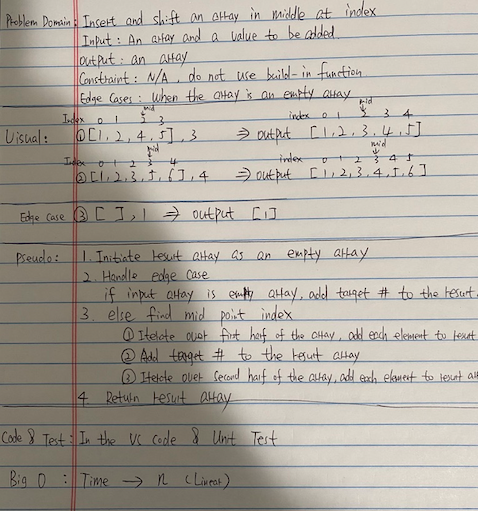 Problem Domain: Insert and shift an array in middle at index
Input: An array and a value to be added.
output: an array
Constraint: N/A, do not use build-in function
Edge Cases: when the array is an empty array
mid mid
Index 0 1 2 3 index 0 1 2 3 4
Visual: ① [1, 2, 4, 5], 3 ⇒ output [1, 2, 3, 4, 5]
mid mid
Index 0 1 2 3 4 index 0 1 2 3 4 5
② [1, 2, 3, 5, 6], 4 ⇒ output [1, 2, 3, 4, 5, 6]
Edge case ③ [ ], 1 ⇒ output [1]
Pseudo: 1. Initiate result array as an empty array
2. Handle edge case
if input array is empty array, add target # to the result.
3. else find mid point index
① Iterate over first half of the array, add each element to result
② Add target # to the result array
③ Iterate over second half of the array, add each element to result ar
4. Return result array
Code & Test: In the VS code & Unit Test
Big O : Time → n (Linear)